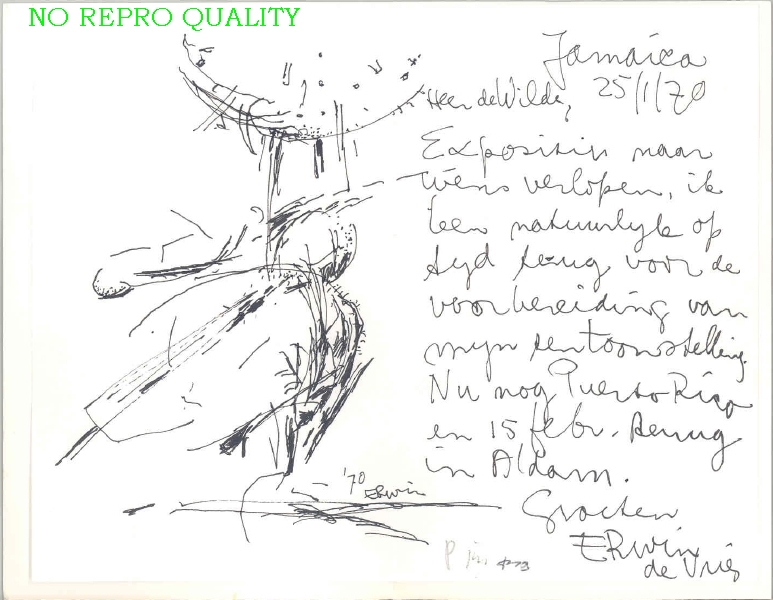 NO REPRO QUALITY
Jamaica
25/1/70
Heer de Wilde,
Expositie naar
wens verlopen, ik
ben natuurlyk op
tyd terug voor de
voorbereiding van
myn tentoonstelling.
Nu nog Puerto Rico
en 15 febr. terug
in A'dam.
Groeten
ERwin
de Vries
'70 Erwin